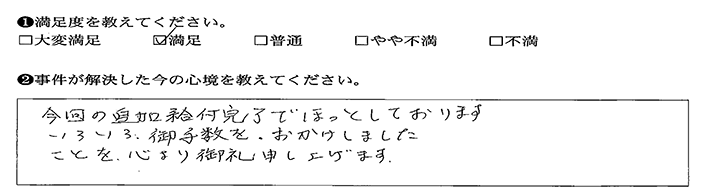 ❶満足度を教えてください。
□大変満足 ☑満足 □普通 □やや不満 □不満
❷事件が解決した今の心境を教えてください。
今回の追加給付完了でほっとしております
いろいろ、御手数を、おかけしました
ことを、心より御礼申し上げます.